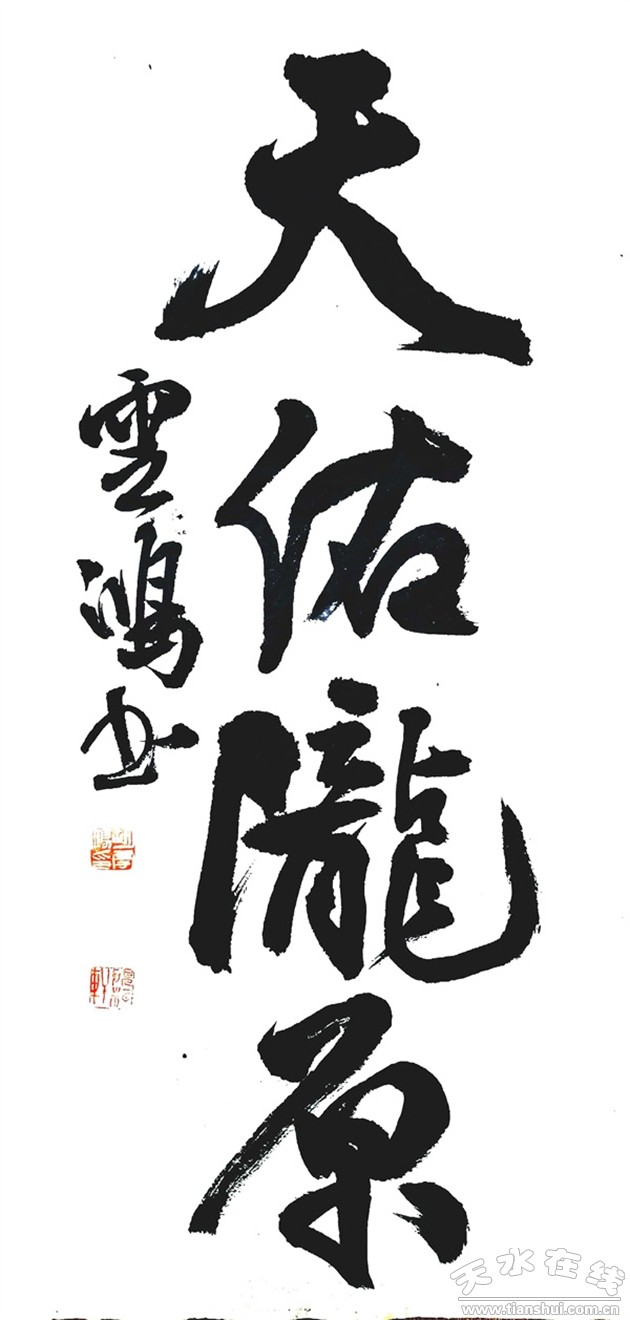 天佑隴原
雲鴻书
天水在线
www.tianshui.com.cn